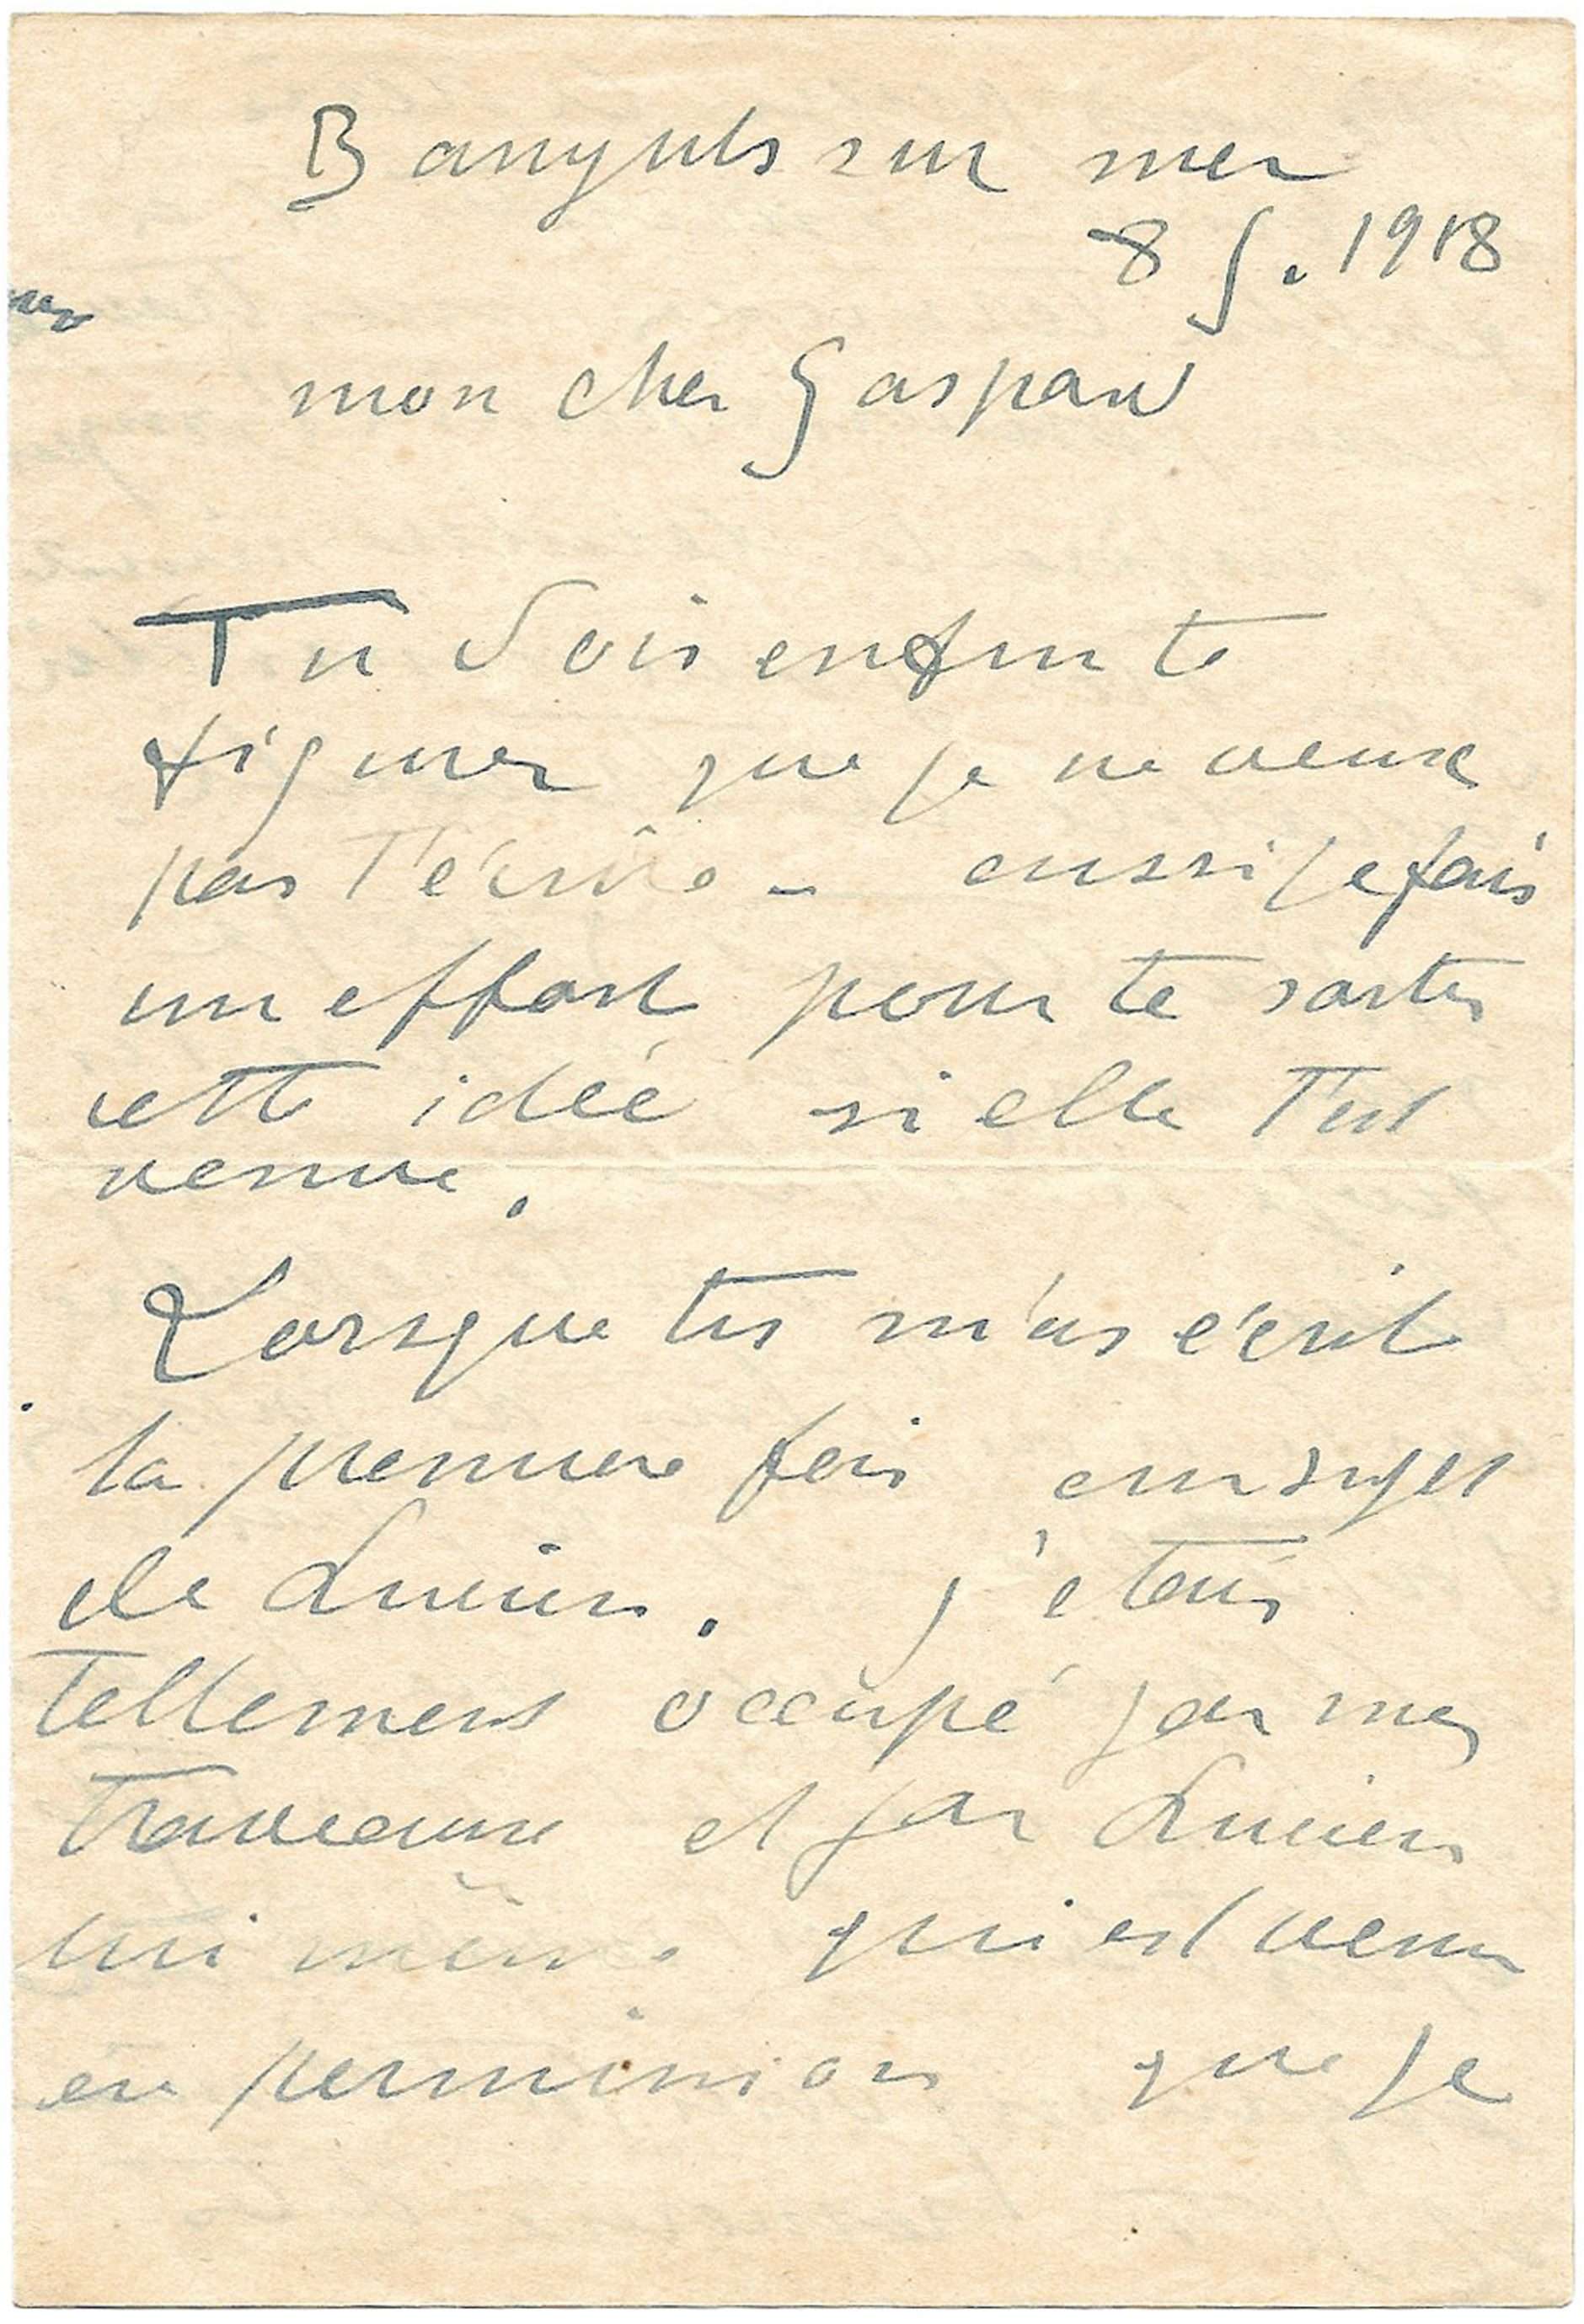 Banyuls sur mer
8 J. 1918
mon cher Gaspard
Tu dois enfin te
figurer que je ne veux
pas t'écrire - aussi je fais
un effort pour te sortir
cette idée si elle t'est
venue.
Lorsque tu m'as écrit
la premiere fois au sujet
de Lucien. j'étais
tellement occupé par mes
travaux et par Lucien
lui même qui est venu
en permission que je